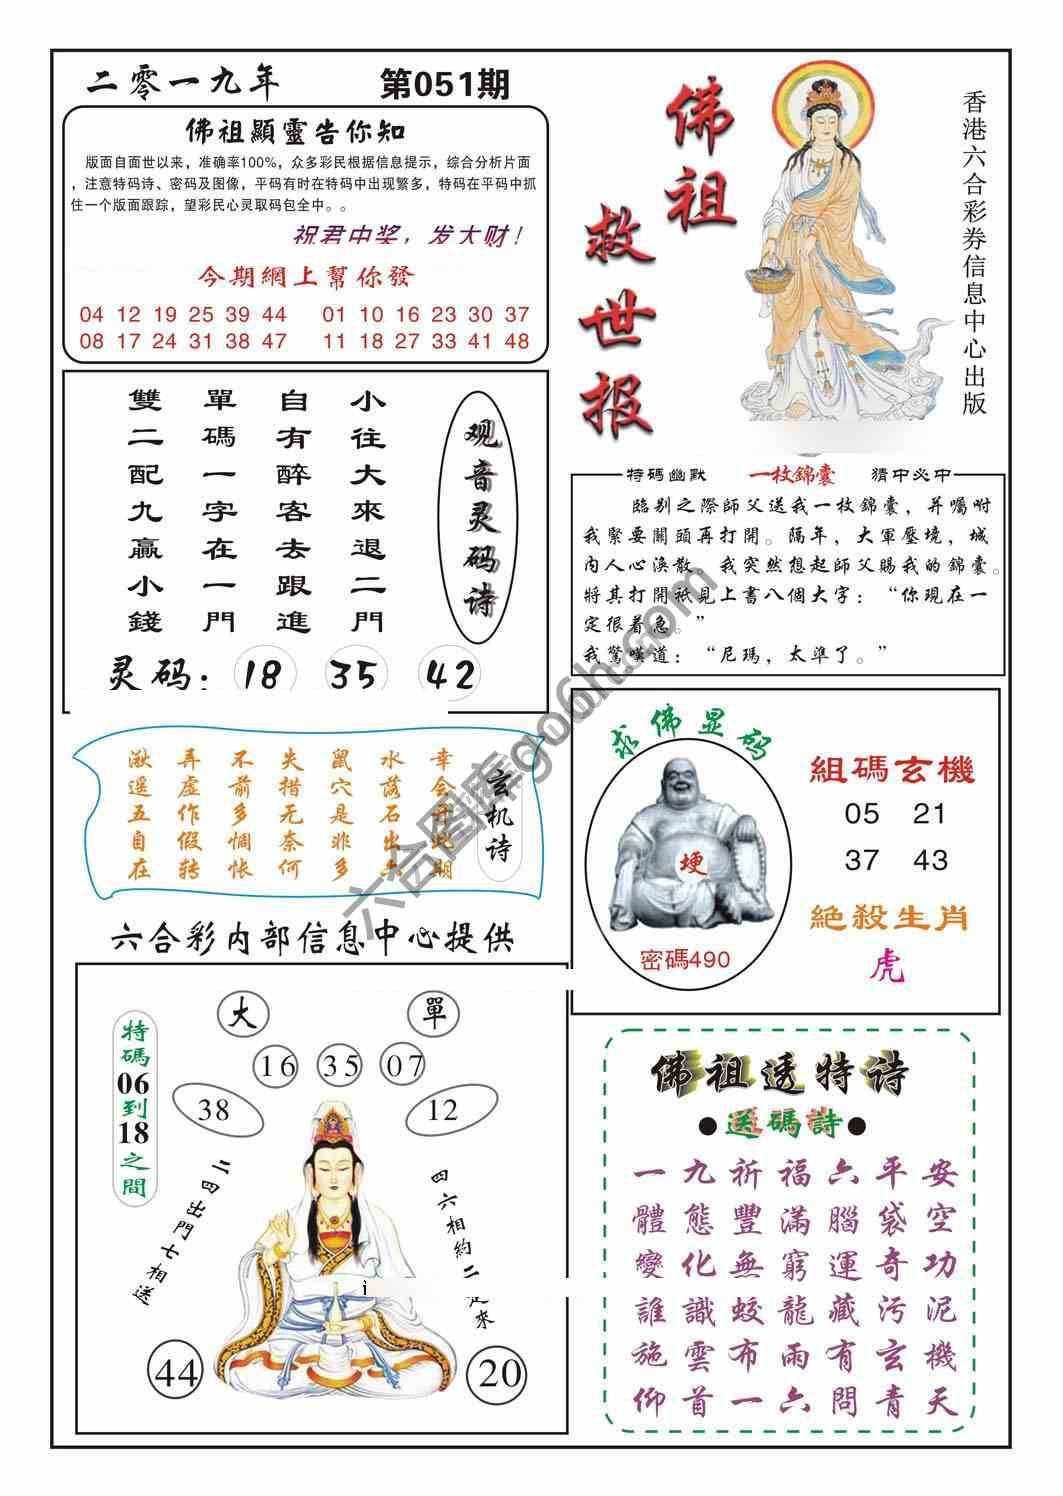 二零一九年
第051期
佛祖顯靈告你知
版面自面世以来，准确率100%，众多彩民根据信息提示，综合分析片面
，注意特码诗、密码及图像，平码有时在特码中出现繁多，特码在平码中抓
住一个版面跟踪，望彩民心灵取码包全中。。
祝君中奖，发大财！
今期網上幫你發
04 12 19 25 39 44 01 10 16 23 30 37
08 17 24 31 38 47 11 18 27 33 41 48
佛祖救世报
香港六合彩券信息中心出版
观音灵码诗
小往大來退二門
自有醉客去跟進
單碼一字在一門
雙二配九贏小錢
灵码：18 35 42
特碼幽默 一枚錦囊 猜中必中
臨别之際師父送我一枚錦囊，并囑咐
我緊要關頭再打開。隔年，大軍壓境，城
内人心渙散，我突然想起師父賜我的錦囊。
將其打開祇見上書八個大字：“你現在一
定很着急。”
我驚嘆道：“尼瑪，太準了。”
玄机诗
幸会于此期
水落石出六
鼠穴是非多
失措无奈何
不前多惆怅
弄虚作假转
遥五自在
求佛显码
埂
密碼490
組碼玄機
05 21
37 43
絶殺生肖
虎
六合彩内部信息中心提供
大 單
16 35 07
38 12
特碼06到18之間
二四出門七相送
四六相約二 來
i
44 20
佛祖透特诗
●送碼詩●
一九祈福六平安
體態豐滿腦袋空
變化無窮運奇功
誰識蛟龍藏污泥
施雲布雨有玄機
仰首一六問青天
六合图库go6h.com